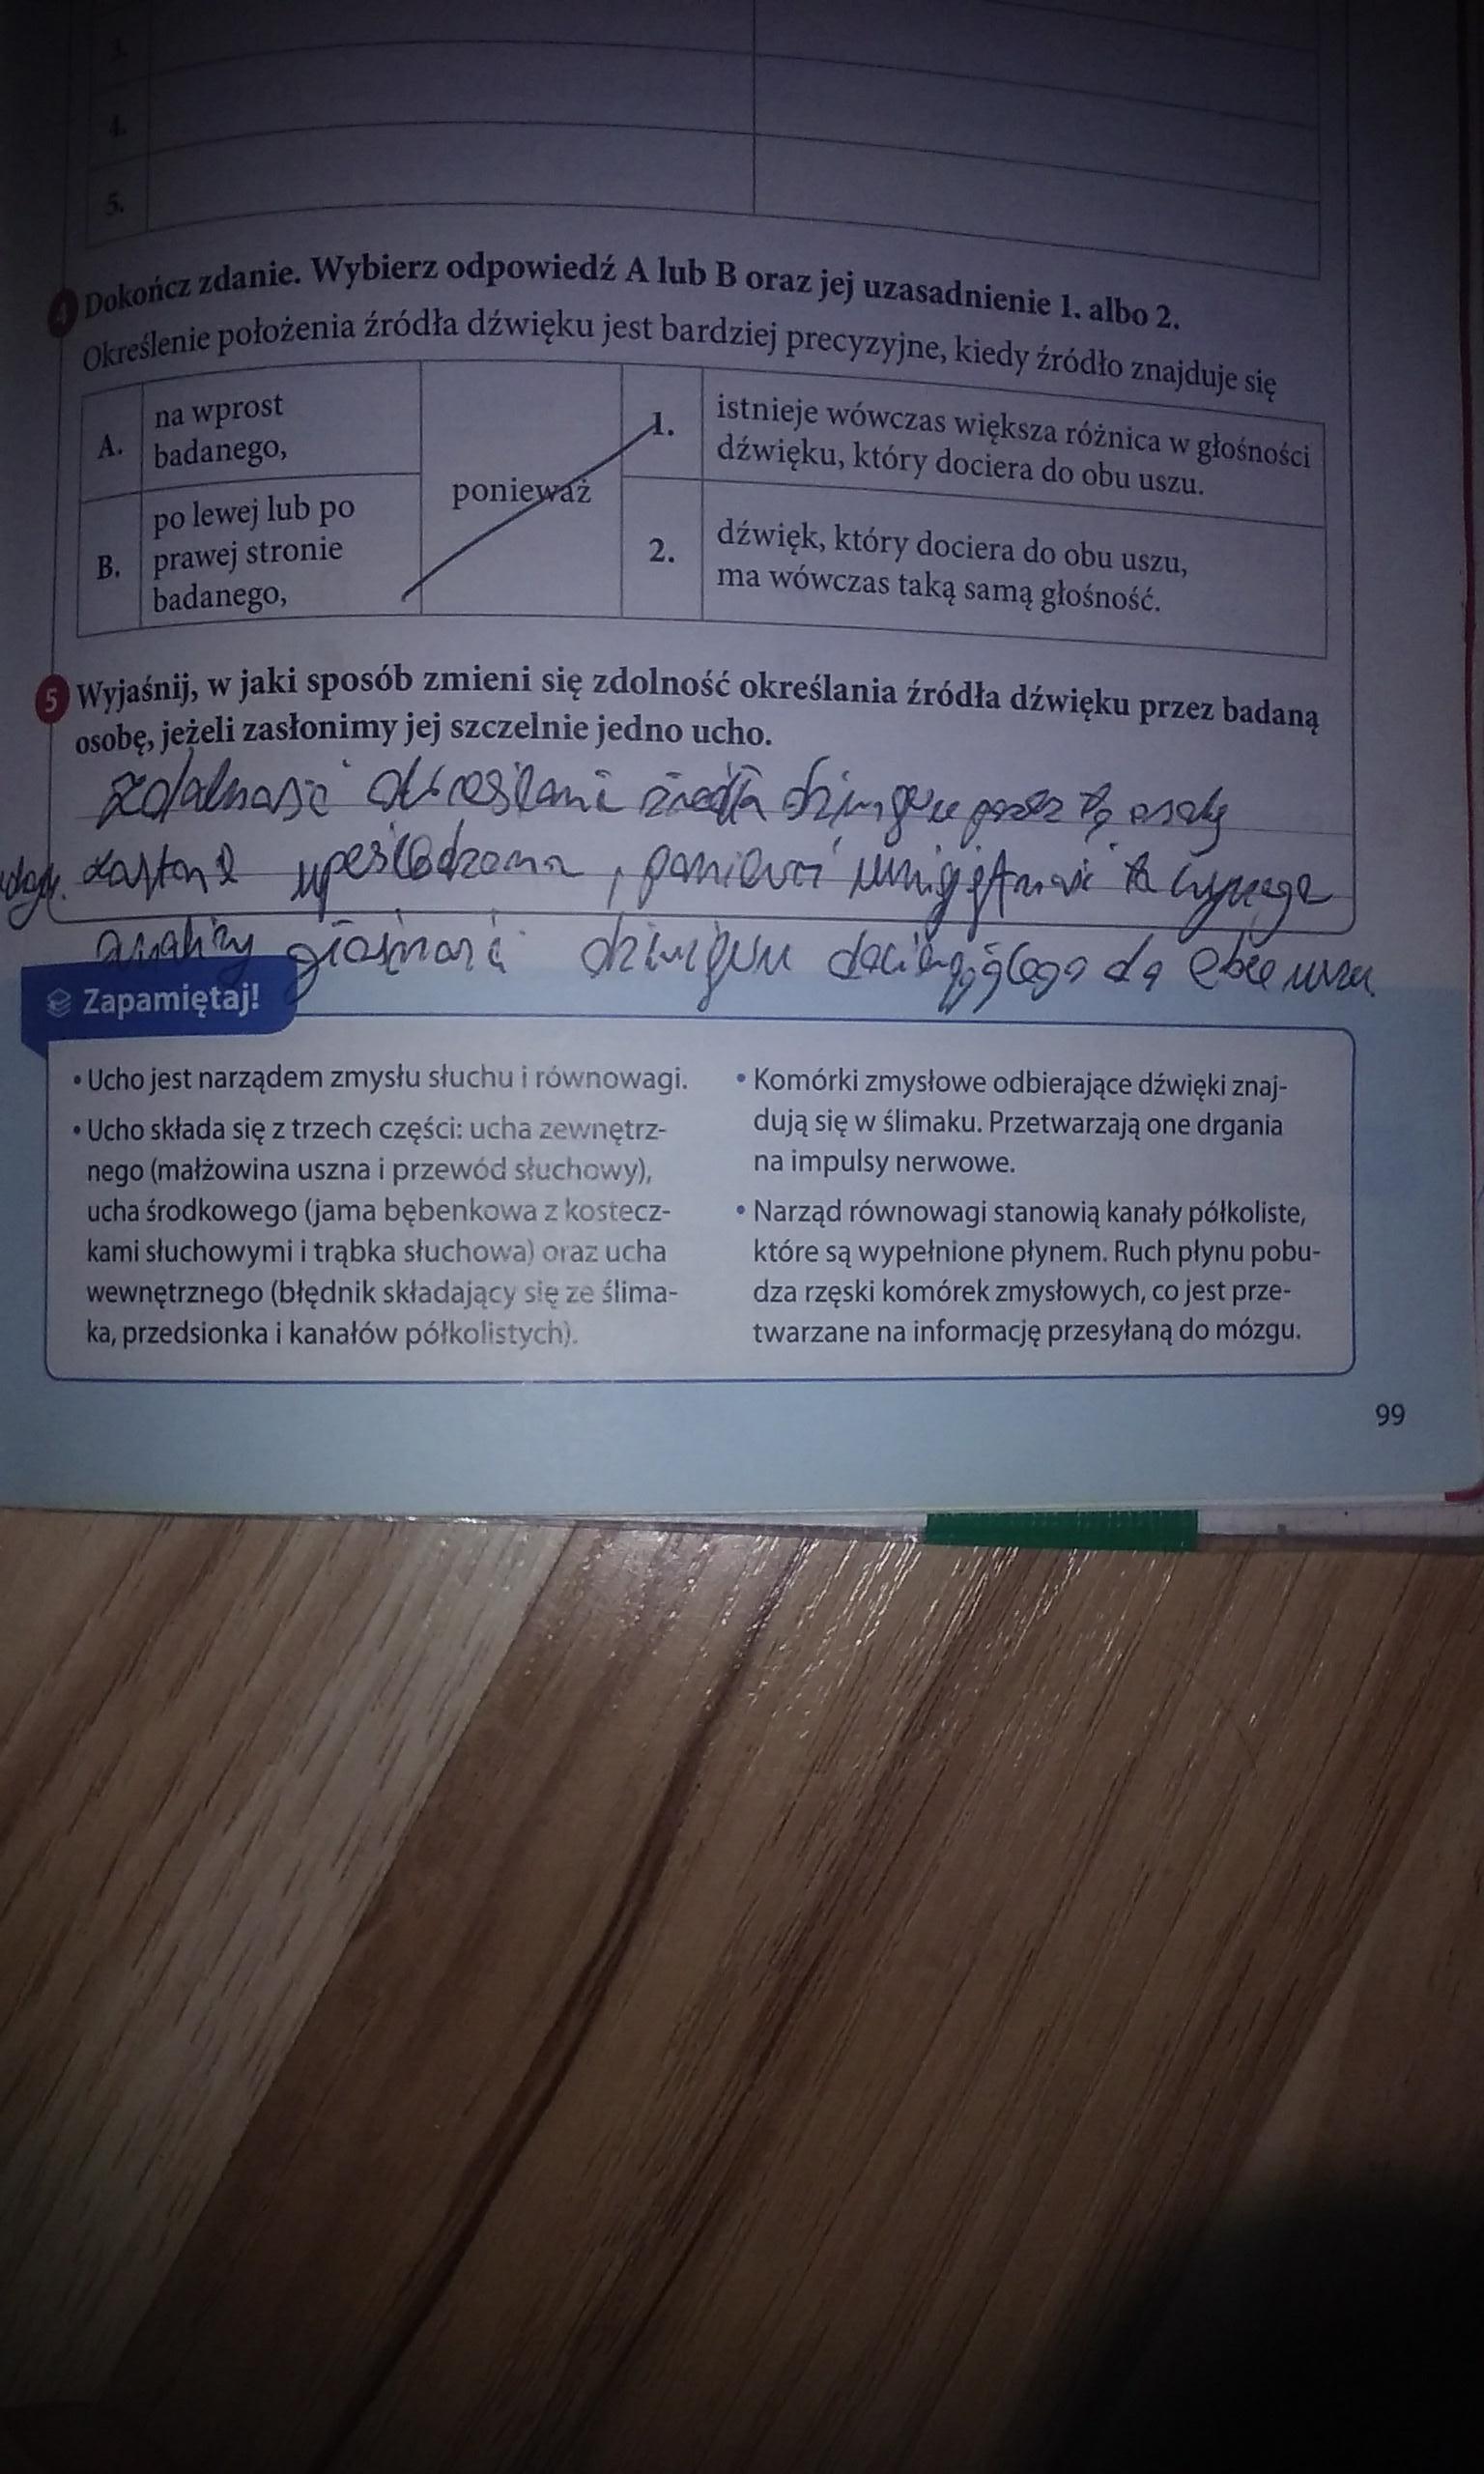 3.
4.
5.
4 Dokończ zdanie. Wybierz odpowiedź A lub B oraz jej uzasadnienie 1. albo 2.
Określenie położenia źródła dźwięku jest bardziej precyzyjne, kiedy źródło znajduje się
A. na wprost
badanego,
B. po lewej lub po
prawej stronie
badanego,
ponieważ
1. istnieje wówczas większa różnica w głośności
dźwięku, który dociera do obu uszu.
2. dźwięk, który dociera do obu uszu,
ma wówczas taką samą głośność.
5 Wyjaśnij, w jaki sposób zmieni się zdolność określania źródła dźwięku przez badaną
osobę, jeżeli zasłonimy jej szczelnie jedno ucho.
zdolność określania źródła dźwięku przez tę osobę
umiejętność ta wymaga
analizy głośności dźwięku docierającego do obu uszu
Zapamiętaj!
• Ucho jest narządem zmysłu słuchu i równowagi.
• Ucho składa się z trzech części: ucha zewnętrz-
nego (małżowina uszna i przewód słuchowy),
ucha środkowego (jama bębenkowa z kostecz-
kami słuchowymi i trąbka słuchowa) oraz ucha
wewnętrznego (błędnik składający się ze ślima-
ka, przedsionka i kanałów półkolistych).
• Komórki zmysłowe odbierające dźwięki znaj-
dują się w ślimaku. Przetwarzają one drgania
na impulsy nerwowe.
• Narząd równowagi stanowią kanały półkoliste,
które są wypełnione płynem. Ruch płynu pobu-
dza rzęski komórek zmysłowych, co jest prze-
twarzane na informację przesyłaną do mózgu.
99